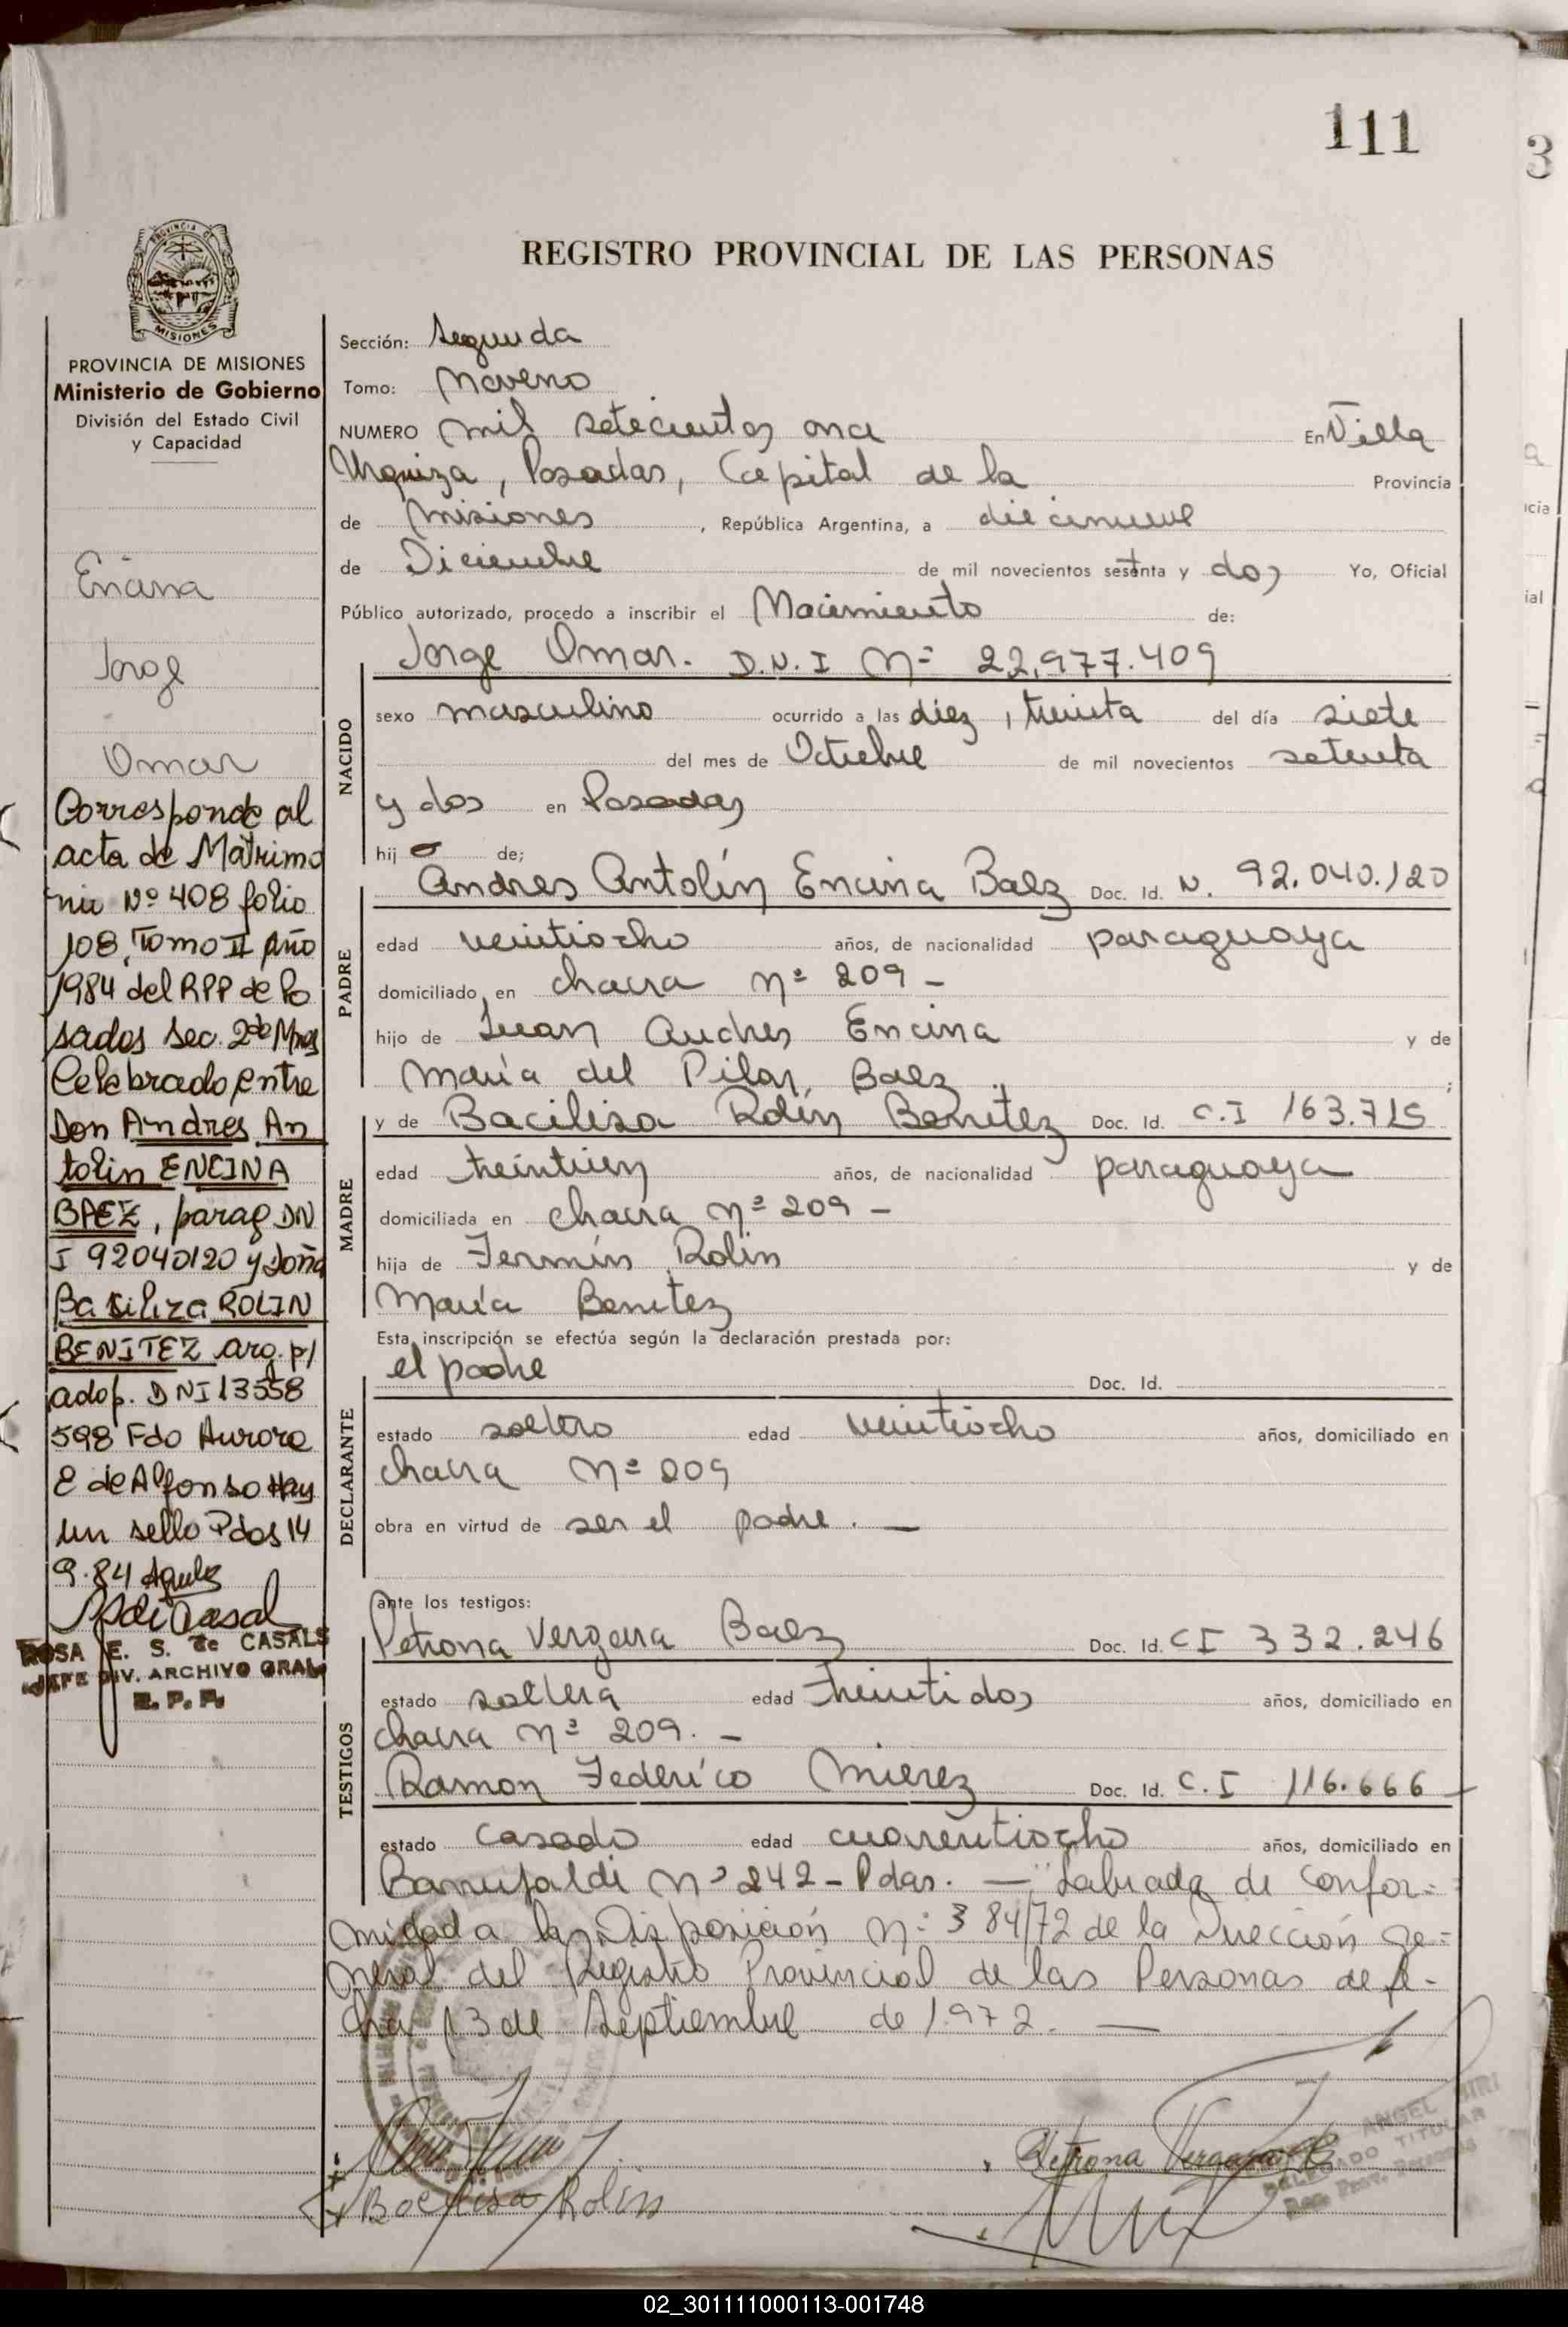 111
3
REGISTRO PROVINCIAL DE LAS PERSONAS
PROVINCIA DE
MISIONES
PROVINCIA DE MISIONES
Ministerio de Gobierno
División del Estado Civil
y Capacidad
Encina
Jorge
Omar
Corresponde al
acta de Matrimo
nio Nº 408 folio
108, Tomo II Año
1984 del RPP de Po
sadas Sec. 2da Mnes
Celebrado entre
Don Andres An
tolin ENCINA
BAEZ, parag DN
I 92040120 y Doña
Basiliza ROLIN
BENITEZ arg. p/
adop. DNI 13558
598 Fdo Aurora
E de Alfonso Hay
un sello Pdas 14
9.84
ROSA E. S. de CASALS
JEFE DIV. ARCHIVO GRAL
R. P. P.
Sección: Segunda
Tomo: Noveno
NUMERO mil setecientos once En Villa
Urquiza, Posadas, Capital de la Provincia
de Misiones, República Argentina, a diecinueve
de Diciembre de mil novecientos setenta y dos Yo, Oficial
Público autorizado, procedo a inscribir el Nacimiento de:
NACIDO
Jorge Omar. D.N.I Nº 22.977.409
sexo masculino ocurrido a las diez, treinta del día siete
del mes de Octubre de mil novecientos setenta
y dos en Posadas
hijo de;
PADRE
Andres Antolín Encina Baez Doc. Id. N. 92.040.120
edad veintiocho años, de nacionalidad paraguaya
domiciliado en chacra Nº 209 -
hijo de Juan Andres Encina y de
María del Pilar Baez ;
MADRE
y de Baciliza Rolín Benitez Doc. Id. C.I 163.715
edad treintiun años, de nacionalidad paraguaya
domiciliada en chacra Nº 209 -
hija de Fermín Rolín y de
María Benitez
Esta inscripción se efectúa según la declaración prestada por:
DECLARANTE
el padre Doc. Id.
estado soltero edad veintiocho años, domiciliado en
chacra Nº 209
obra en virtud de ser el padre. —
ante los testigos:
TESTIGOS
Petrona Vergara Baez Doc. Id. CI 332.246
estado soltera edad treintidos años, domiciliado en
chacra Nº 209. -
Ramon Federico Mierez Doc. Id. C.I 116.666 -
estado casado edad cuarentiocho años, domiciliado en
Nº 242 - Pdas. — Labrada de confor=
midad a la Disposición Nº 384/72 de la Dirección Ge=
neral del Registro Provincial de las Personas de fe-
cha 13 de Septiembre de 1.972. —
Petrona Vergara
Rolin
ANGEL
DELEGADO TITULAR
Reg. Prov. Personas
02_301111000113-001748